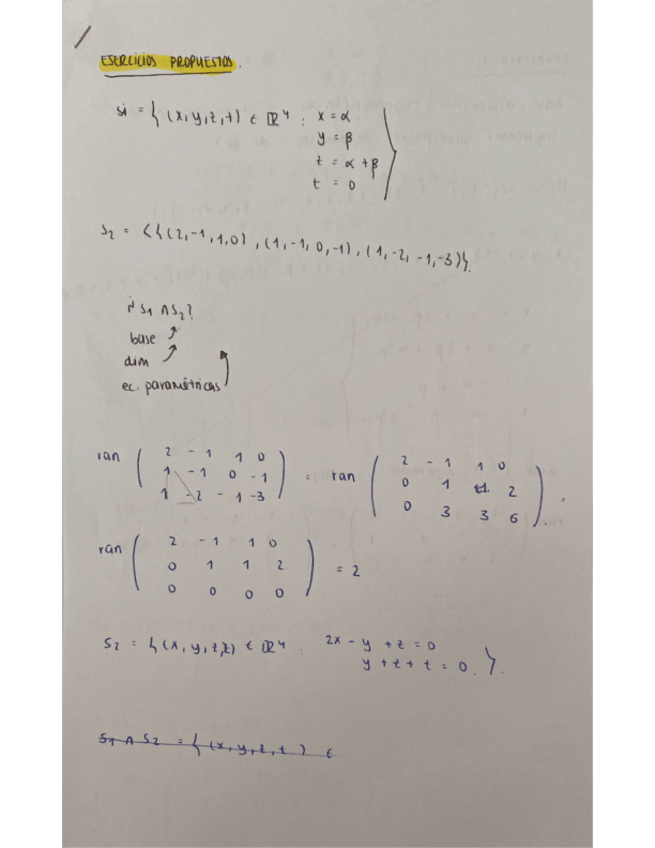 EJERCICIOS PROPUESTOS.
si = { (x,y,z,t) ∈ ℝ4 : x = α
y = β
z = α + β
t = 0 }
S2 = < { (2,-1,1,0), (1,-1,0,-1), (1,-2,-1,-3) }.
¿ S1 ∩ S2?
base
dim
ec. paramétricas
ran ( 2 -1 1 0
1 -1 0 -1
1 -2 -1 -3 ) = ran ( 2 -1 1 0
0 1 1 2
0 3 3 6 ). =
ran ( 2 -1 1 0
0 1 1 2
0 0 0 0 ) = 2
S2 = { (x,y,z,t) ∈ ℝ4 : 2x - y + z = 0
y + z + t = 0. }.
S1 ∩ S2 = { (x,y,z,t) ∈